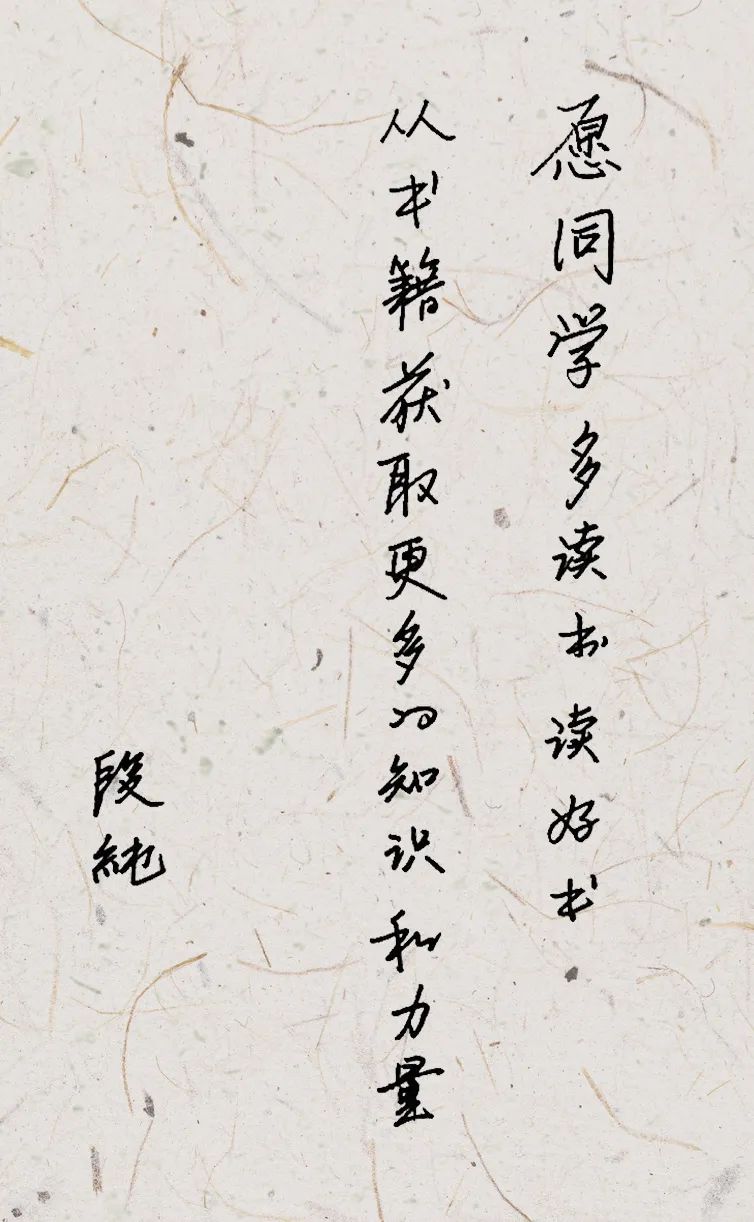 愿同学多读书读好书
从书籍获取更多的知识和力量
段純